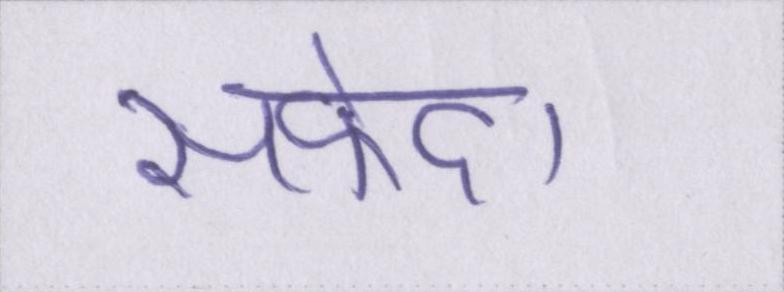 सफेदा